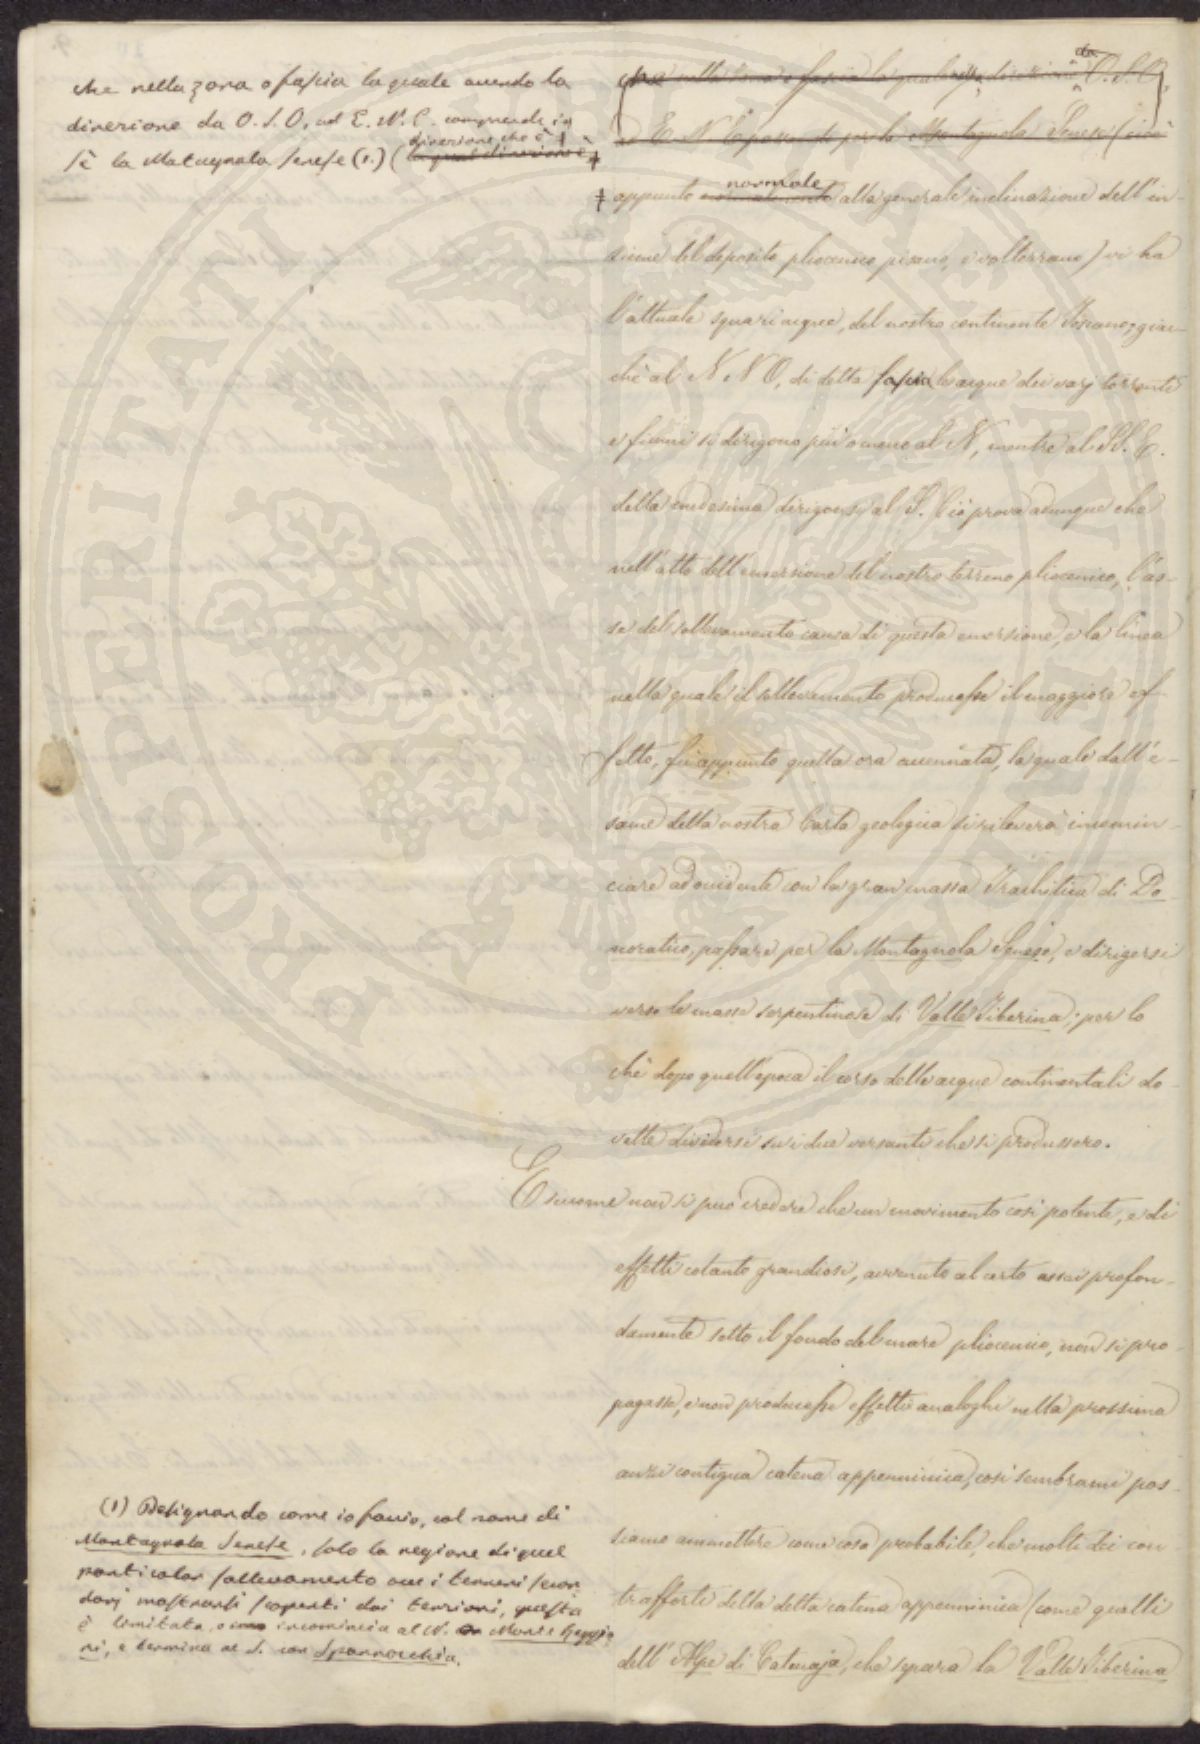 che nella zona o fascia la quale avendo la
direzione da O.S.O, ad E.N.E. comprende in
direzione che è
sè la Montagnola Senese (1.) (la qual direzione è ‡
da
che nella zona o fascia la quale direzione O.S.O,
ad E N E passando per la Montagnola Senese (cioè
normale
‡ appunto normalmente alla generale inclinazione dell'in-
sieme del deposito pliocenico pisano, e volterrano) vi ha
l'attuale squariacque, del nostro continente Toscano, giac-
chè al N N O, di detta fascia le acque dei varj torrenti
e fiumi si dirigono più o meno al N, mentre al S.S.E.
della medesima dirigonsi al S. Ciò prova adunque che
nell'atto dell'emersione del nostro terreno pliocenico, l'as-
se del sollevamento causa di questa emersione, e la linea
nella quale il sollevamento producesse il maggiore ef-
fetto, fù appunto quella ora accennata, la quale dall'e-
same della nostra Carta geologica si rileverà incomin-
ciare ad occidente con la gran massa Trachitica di Do-
noratico, passare per la Montagnola Senese, e dirigersi
verso le masse serpentinose di Valle Tiberina; per lo
chè dopo quell'epoca il corso delle acque continentali do-
vette dividersi su i due versanti che si produssero.
E siccome non si può credere che un movimento così potente, e di
effetti cotanto grandiosi, avvenuto al certo assai profon-
damente sotto il fondo del mare pliocenico, non si pro-
pagasse, e non producesse effetti analoghi nella prossima
anzi contigua catena appenninica, così sembrami pos-
siamo ammettere come cosa probabile, che molti dei con-
trafforti della detta catena appenninica (come quelli
dell'Alpe di Catenaja, che separa la Valle Tiberina
(1) Designando come io faccio, col nome di
Montagnola Senese, solo la regione di quel
particolar sollevamento ove i terreni secon
darj mostransi scoperti dai terziari, questa
è limitata, o incomincia al N. con Monte Maggio
ni, e termina al S. con Spannocchia.